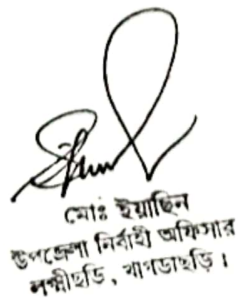 মোঃ ইয়াছিন
উপজেলা নির্বাহী অফিসার
লক্ষ্মীছড়ি, খাগড়াছড়ি।